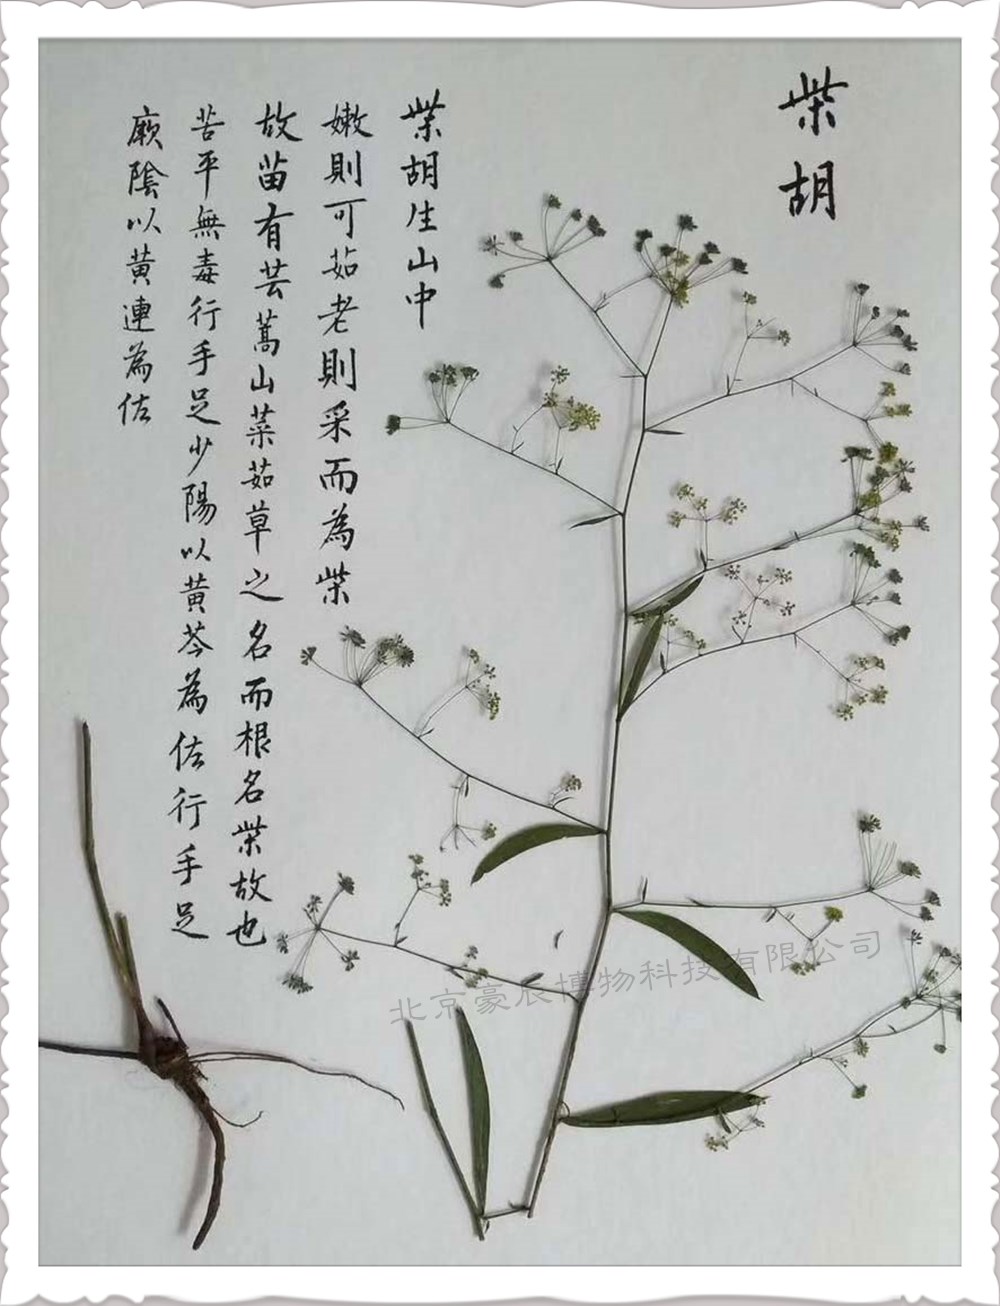 柴胡
柴胡生山中
嫩則可茹老則采而為柴
故苗有芸蒿山菜茹草之名而根名柴故也
苦平無毒行手足少陽以黄芩為佐行手足
厥陰以黄連為佐
北京豪辰博物科技有限公司